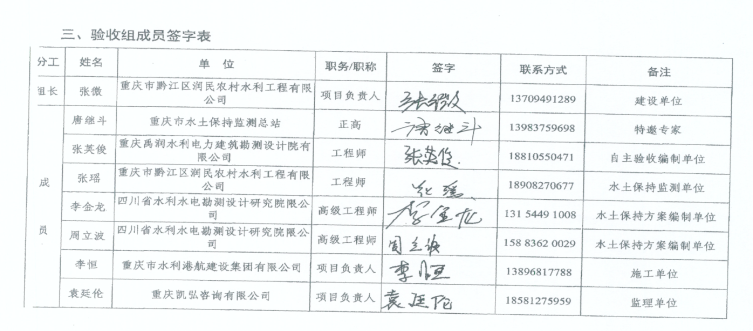 三、验收组成员签字表
分工 姓名 单 位 职务/职称 签字 联系方式 备注
组长 张微 重庆市黔江区润民农村水利工程有限公司 项目负责人 张微 13709491289 建设单位
成员
唐继斗 重庆市水土保持监测总站 正高 唐继斗 13983759698 特邀专家
张英俊 重庆禹润水利电力建筑勘测设计院有限公司 工程师 张英俊 18810550471 自主验收编制单位
张瑶 重庆市黔江区润民农村水利工程有限公司 工程师 张瑶 18908270677 水土保持监测单位
李金龙 四川省水利水电勘测设计研究院限公司 高级工程师 李金龙 131 5449 1008 水土保持方案编制单位
周立波 四川省水利水电勘测设计研究院限公司 高级工程师 周立波 158 8362 0029 水土保持方案编制单位
李恒 重庆市水利港航建设集团有限公司 项目负责人 李恒 13896817788 施工单位
袁廷伦 重庆凯弘咨询有限公司 项目负责人 袁廷伦 18581275959 监理单位